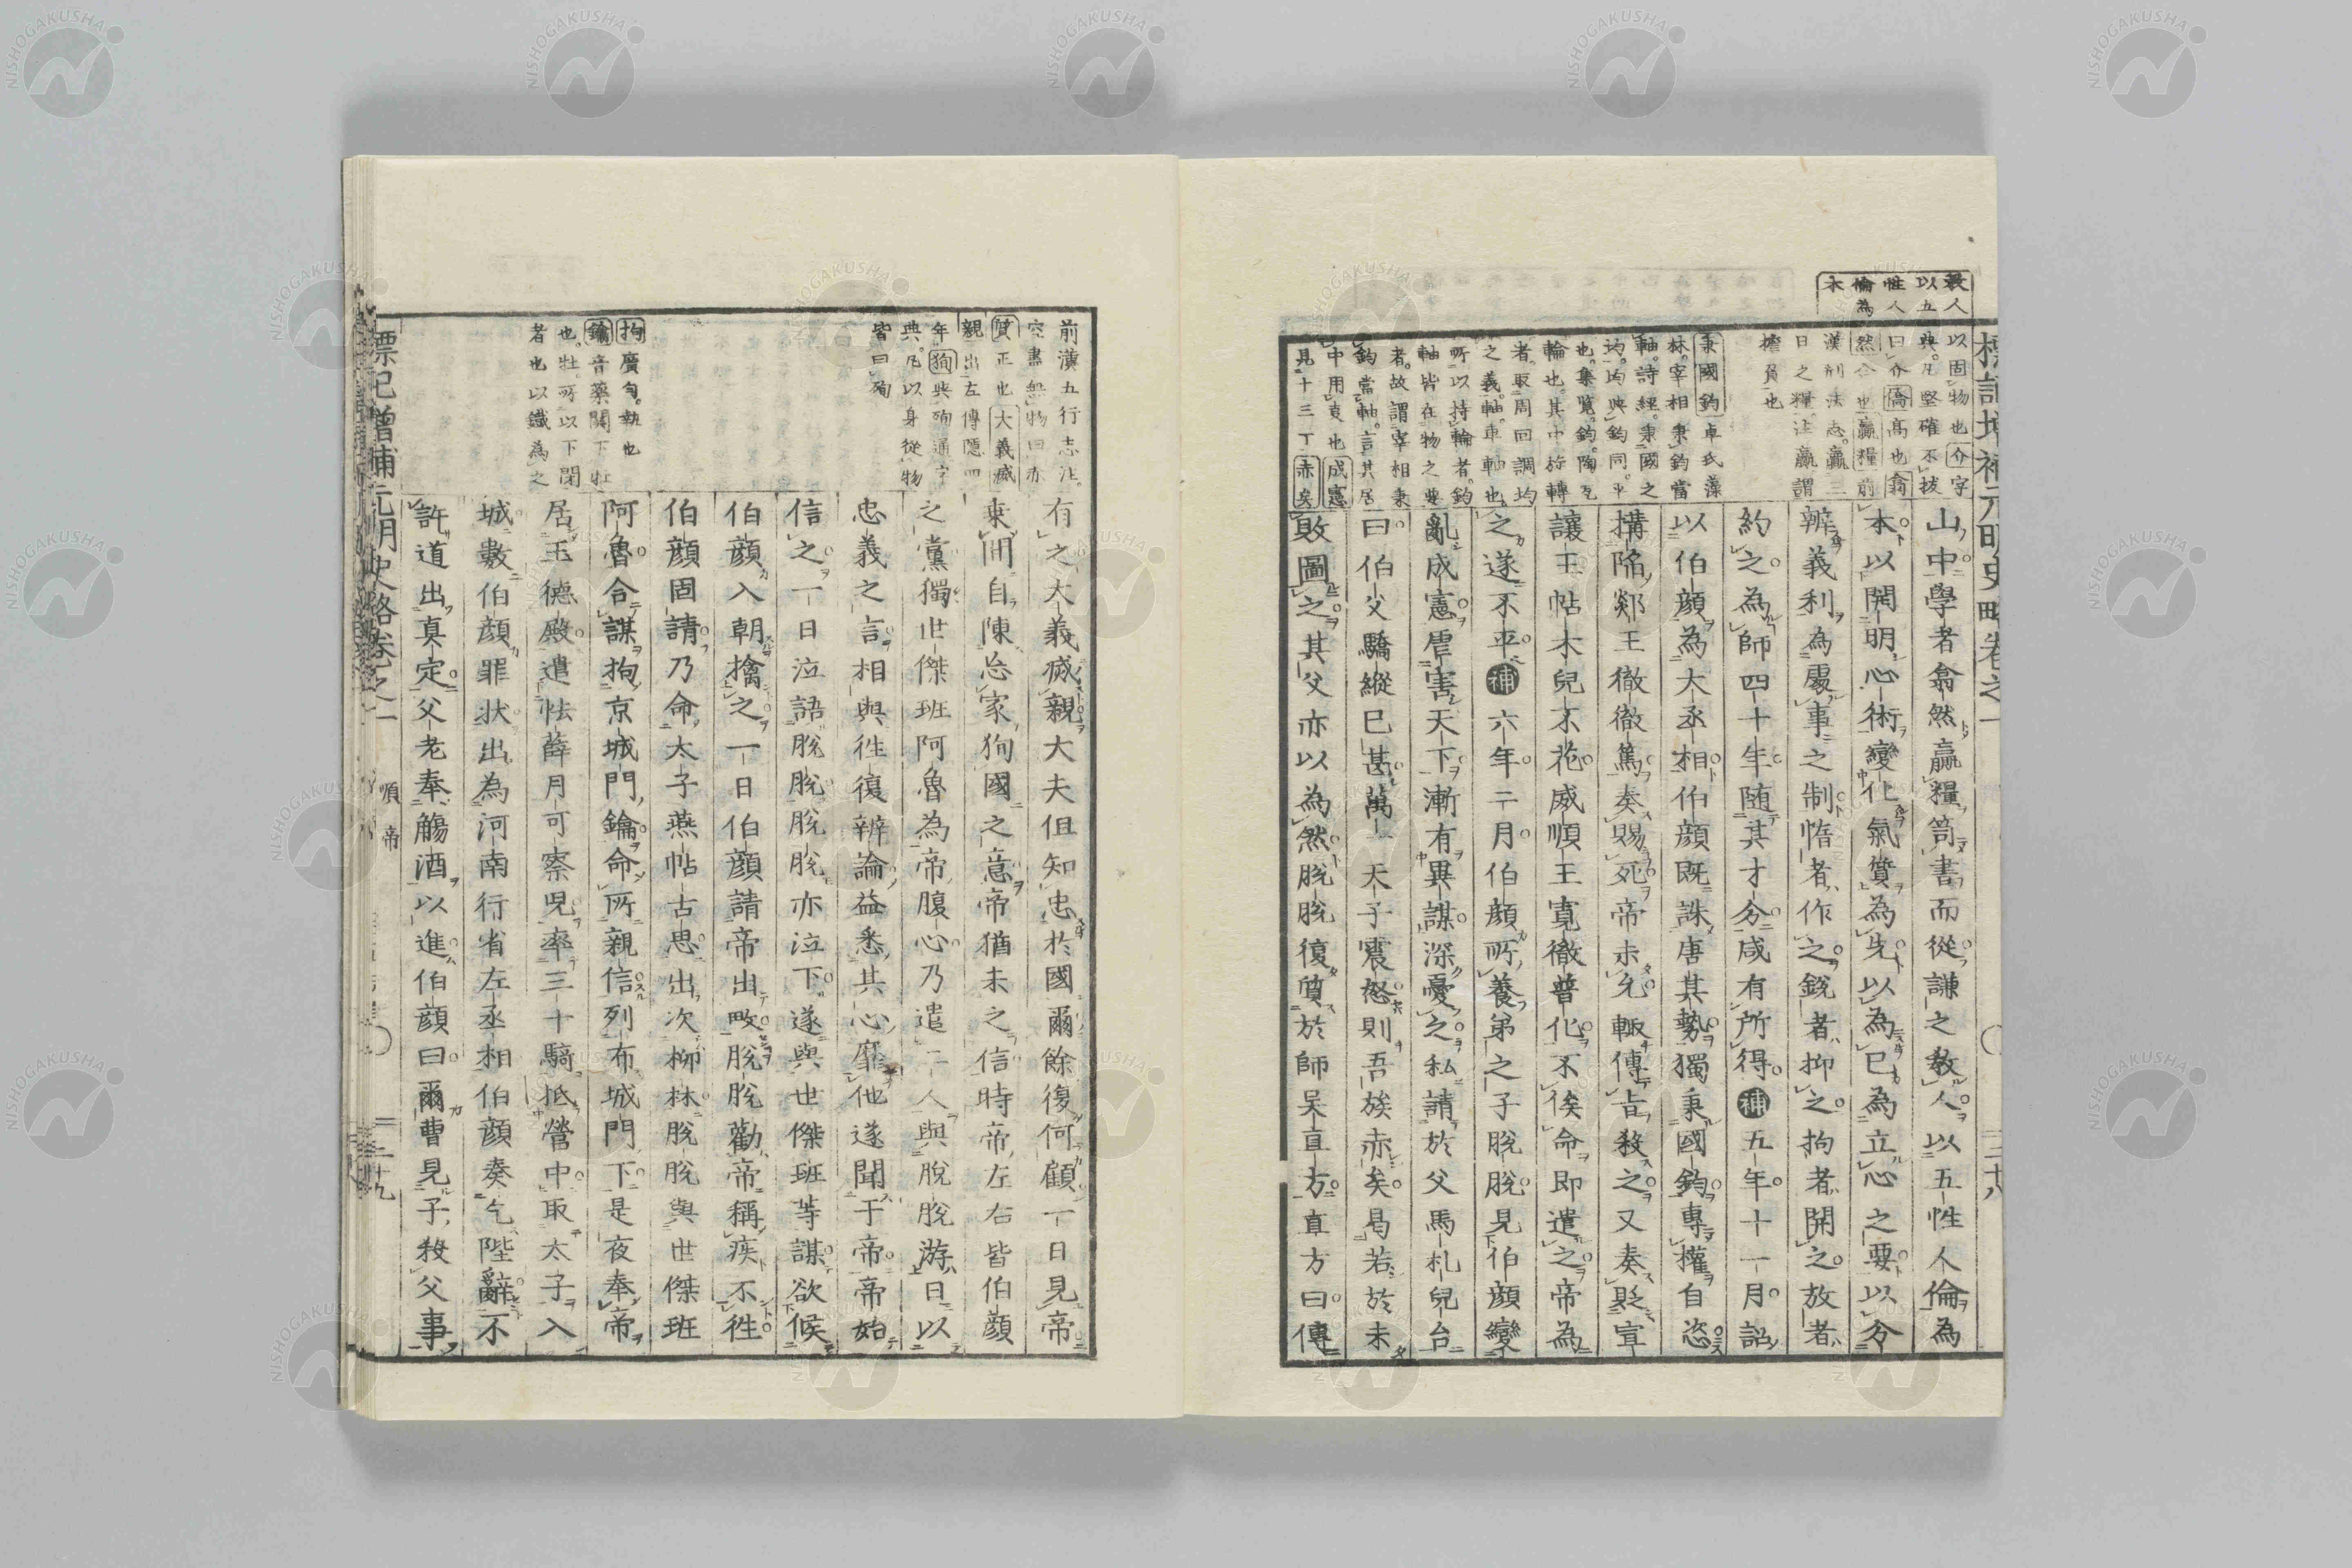 教人
以五
性人
倫為
本
以固物也介字
典凡堅確不抜
曰介僑高也翕
然合也贏糧前
漢刑法志贏三
日之糧注贏謂
擔負也
秉國鈞卓氏藻
林宰相秉鈞當
軸詩經秉國之
均均與鈞同平
也集覽鈞陶瓦
輪也其中旋轉
者取周回調均
之義軸車軸也
所以持輪者鈞
軸皆在物之要
者故謂宰相秉
鈞當軸言其居
中用衷也成憲
見十三丁赤矣
標記增補元明史略卷之一
二十八
山中學者翕然贏糧笥書而從謙之教人以五性人倫為
本以開明心術變化氣質為先以為己為立心之要以分
辨義利為處事之制惰者作之銳者抑之拘者開之放者
約之為師四十年隨其才分咸有所得補五年十一月詔
以伯顏為大丞相伯顏既誅唐其勢獨秉國鈞專權自恣
搆陷郯王徹徹篤奏賜死帝未允輙傳旨殺之又奏貶宣
讓王帖木兒不花威順王寬徹普化不俟命即遣之帝為
之遂不平補六年二月伯顏所養弟之子脫脫見伯顏變
亂成憲虐害天下漸有異謀深憂之私請於父馬札兒台
曰伯父驕縱已甚萬一天子震怒則吾族赤矣曷若於未
敗圖之其父亦以為然脫脫復質於師吳直方直方曰傳
前漢五行志注
空盡無物曰赤
質正也大義滅
親出左傳隱四
年徇與殉通字
典凡以身從物
皆曰殉
拘廣勻執也
鑰音藥關下牡
也牡所以下閉
者也以鐵為之
有之大義滅親大夫但知忠於國爾餘復何顧一日見帝
乘間自陳忘家徇國之意帝猶未之信時帝左右皆伯顏
之黨獨世傑班阿魯為帝腹心乃遣二人與脫脫游日以
忠義之言相與往復辨論益悉其心靡他遂聞于帝帝始
信之一日泣語脫脫脫脫亦泣下遂與世傑班等謀欲候
伯顏入朝擒之一日伯顏請帝出畋脫脫勸帝稱疾不往
伯顏固請乃命太子燕帖古思出次柳林脫脫與世傑班
阿魯合謀拘京城門鑰命所親信列布城門下是夜奉帝
居玉德殿遣怯薛月可察兒率三十騎抵營中取太子入
城數伯顏罪狀出為河南行省左丞相伯顏奏乞陛辭不
許道出真定父老奉觴酒以進伯顏曰爾曹見子殺父事
標記增補元明史略卷之一
順帝
二十九